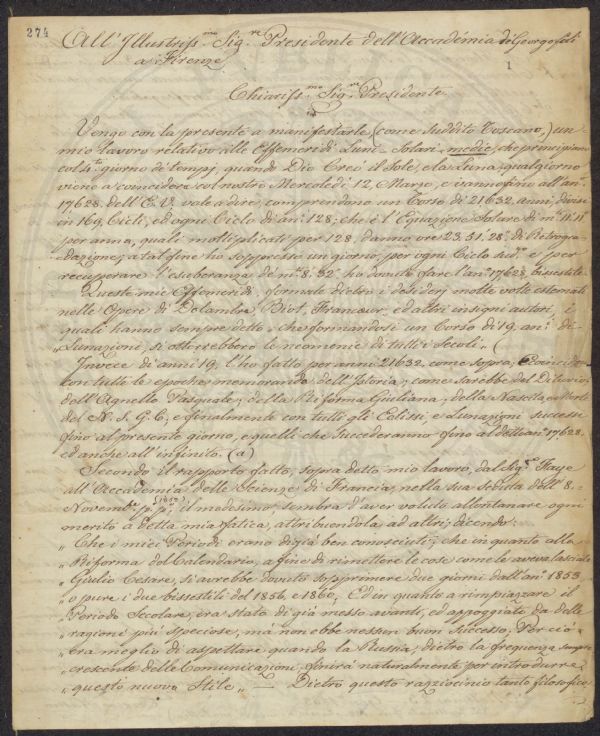 274
All' Illustriss.mo Sig.re Presidente dell' Accadémia de' Georgofili
a Firenze
1
Chiariss.mo Sig.re Presidente
Vengo con la presente a manifestarle (come suddito Toscano,) un
mio lavoro relativo alle Effemeridi Luni-Solari medie, che principian
col 4.to giorno de' tempi, quando Dio Creò il Sole, e la Luna, qual giorno
viene a coincidere col nostro Mercoledì 12. Marzo, e vanno fino all' an.o
17628. dell' E. V. vale a dire, comprendono un Corso di 21632. anni, divisi
in 169. Cicli, ed ogni Ciclo di an.i 128; che è l' Equazione Solare di m.ti 11. 11
per anno, quali moltiplicati per 128, danno ore 23. 51. 28. di Retrogra-
dazione; a tal fine ho soppresso un giorno, per ogni Ciclo sud.o e per
recuperare l' esuberanza de' m.ti 8. 32. ho dovuto fare l' an.o 17628. bisestile.
Queste mie Effemeridi, formate dietro i desiderj molte volte esternati
nelle Opere di Delambre, Biot, Francoeur, ed altri insigni autori, i
quali hanno sempre detto; che formandosi un Corso di 19. an.i di
"Lunazioni, si otterrebbero le niomenie di tutti i Secoli."
Invece di anni 19. l' ho fatto per anni 21632. come sopra;
con tutte le epoche memorande dell' Istoria; come sarebbe del Diluvio,
dell' Agnello Pasquale; della Riforma Giuliana; della Nascita, e Morte
del N. S. G. C; e finalmente con tutti gli Eclissi, e Lunazioni successe
fino al presente giorno, e quelli che succederanno fino al dett' an.o 17628.
ed anche all' infinito. (a)
Secondo il rapporto fatto, sopra detto mio lavoro, dal Sig.re Faye
all' Accademia delle Scienze di Francia, nella sua Seduta dell' 8.
Novemb.e (1852) p. p.o il medesimo, sembra d' aver voluto allontanare ogni
merito a detta mia fatica, attribuendola ad altri; dicendo:
" Che i miei Periodi erano di già ben conosciuti; che in quanto alla
" Riforma del Calendario, a fine di rimettere le cose come le aveva lasciate
" Giulio Cesare, si avrebbe dovuto sopprimere due giorni dall' an.o 1853.
" o pure i due bissestili del 1856, e 1860. Ed in quanto a rimpiazzare il
" Periodo Secolare, era stato di già messo avanti, ed appoggiato da delle
" ragioni più speciose, mà non ebbe nessun buon successo; Per ciò
" era meglio di aspettare quando la Russia; dietro la frequenza sempre
" crescente delle Comunicazioni, finirà naturalmente per introdurre
" questo nuovo Stile " — Dietro questo razziocinio tanto filosofico